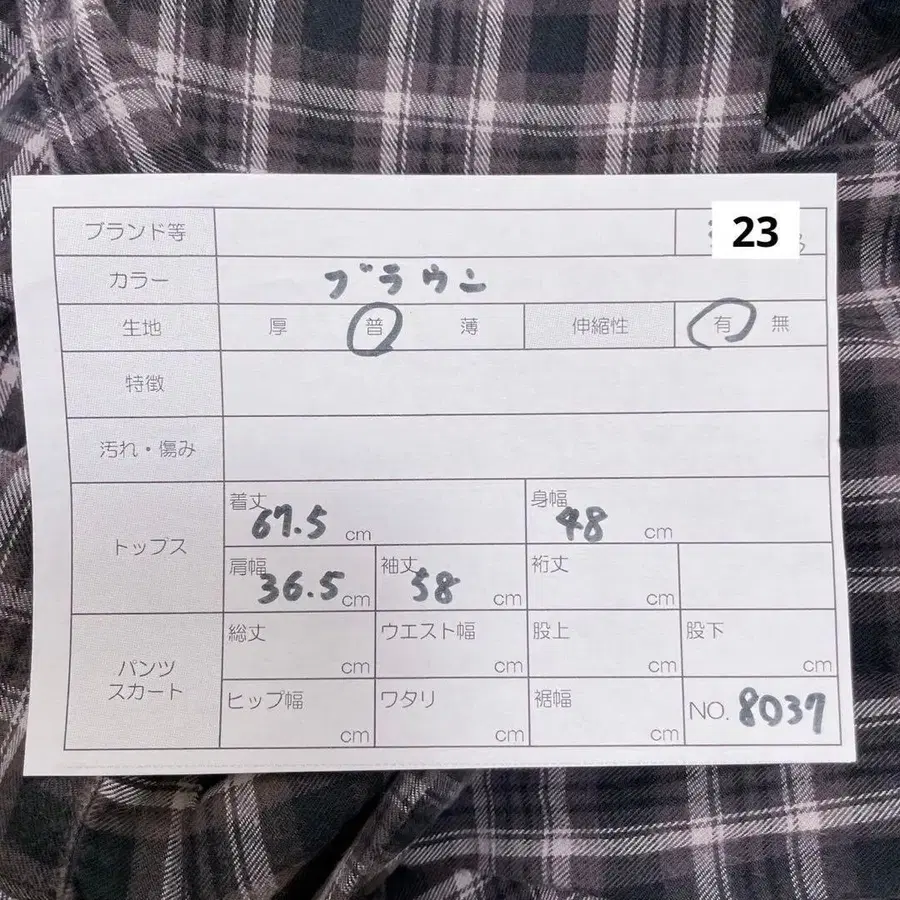 ブランド等 23
カラー ブラウン
生地 厚 普 薄 伸縮性 有 無
特徴
汚れ・傷み
トップス
着丈 67.5 cm 身幅 48 cm
肩幅 36.5 cm 袖丈 58 cm 裄丈 cm
パンツ
スカート
総丈 cm ウエスト幅 cm 股上 cm 股下 cm
ヒップ幅 cm ワタリ cm 裾幅 cm NO. 8037